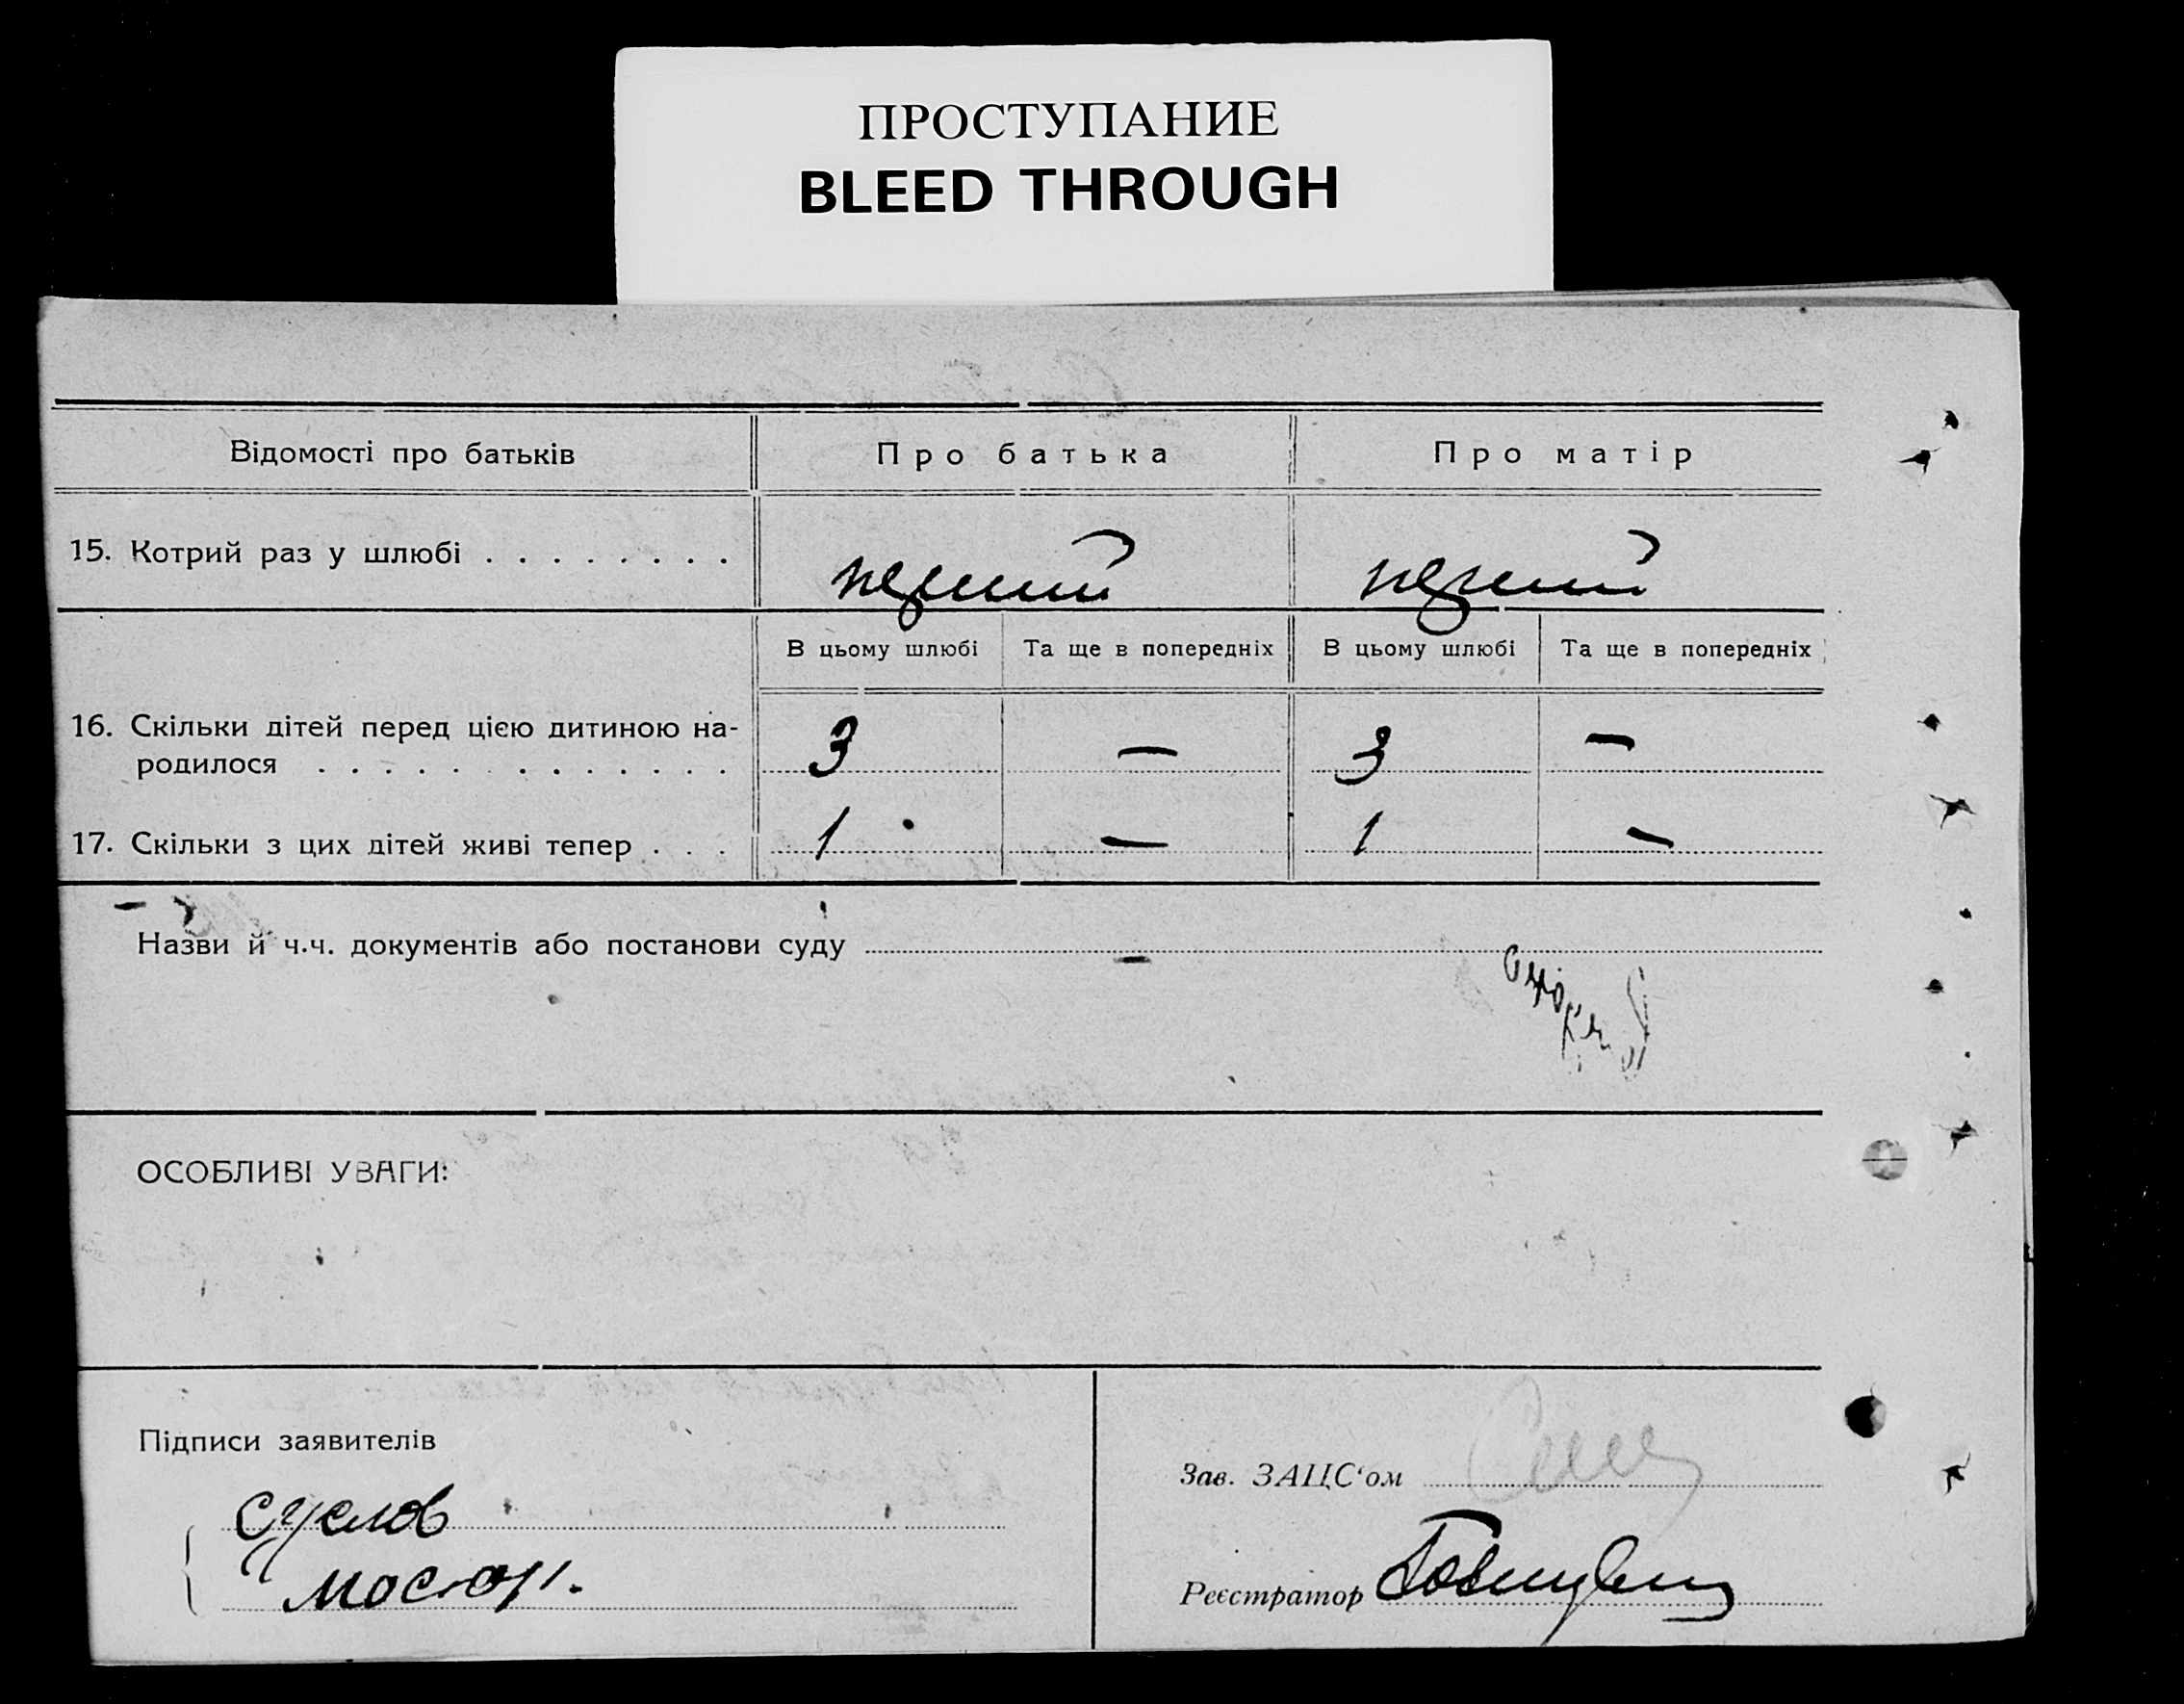 ПРОСТУПАНИЕ
BLEED THROUGH
Відомості про батьків
Про батька
Про матір
15. Котрий раз у шлюбі . . . . . . . .
перший
перший
В цьому шлюбі
Та ще в попередніх
В цьому шлюбі
Та ще в попередніх
16. Скільки дітей перед цією дитиною на-
родилося . . . . . . . . . . . . .
3 — 3 —
17. Скільки з цих дітей живі тепер . . .
1 — 1 —
Назви й ч.ч. документів або постанови суду —
ОСОБЛИВІ УВАГИ:
Підписи заявителів
Зав. ЗАЦС‘ом
Суслов
Реєстратор